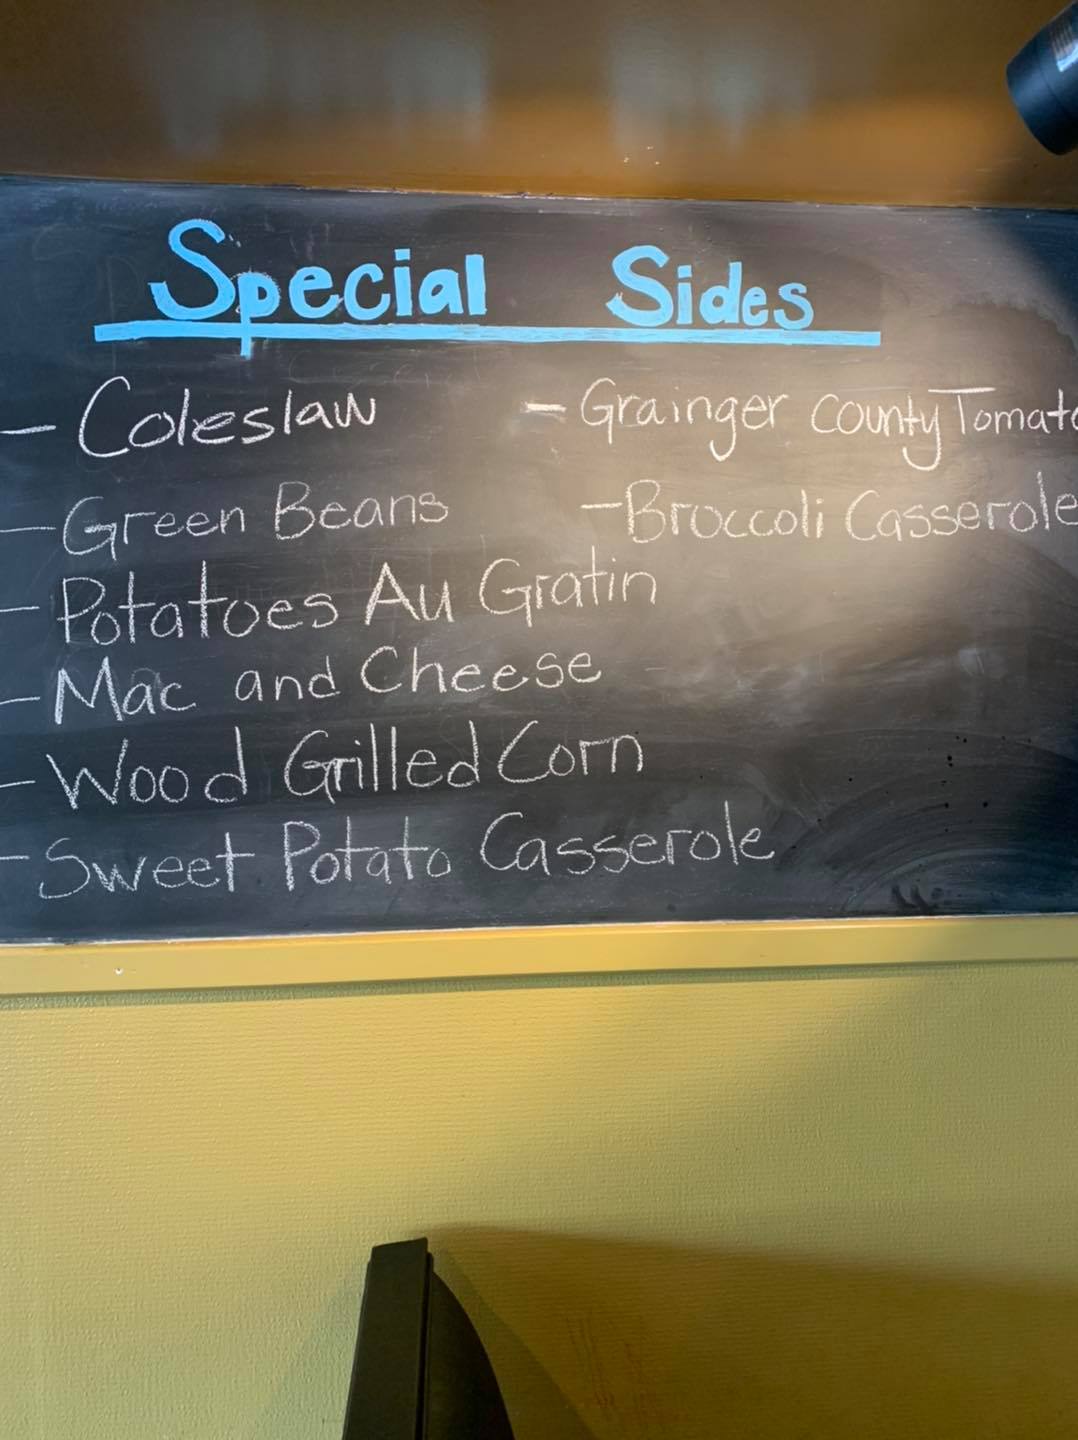 Special Sides
- Coleslaw
- Green Beans
- Potatoes Au Gratin
- Mac and Cheese
- Wood Grilled Corn
- Sweet Potato Casserole
- Grainger County Tomato
- Broccoli Casserole